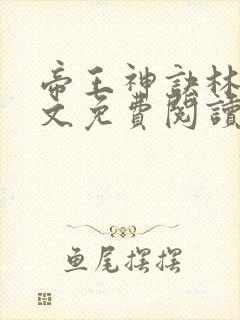 帝王神訣林
文免費閱讀
鱼尾摆摆